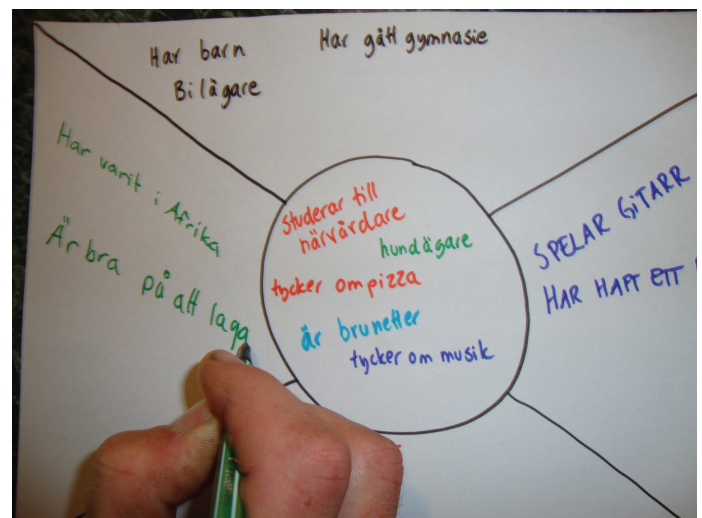 Har barn
Har gått gymnasie
Bilägare
Har varit i Afrika
Är bra på att laga
studerar till
närvårdare
hundägare
tycker om pizza
är brunetter
tycker om musik
SPELAR GITARR
HAR HAFT ETT